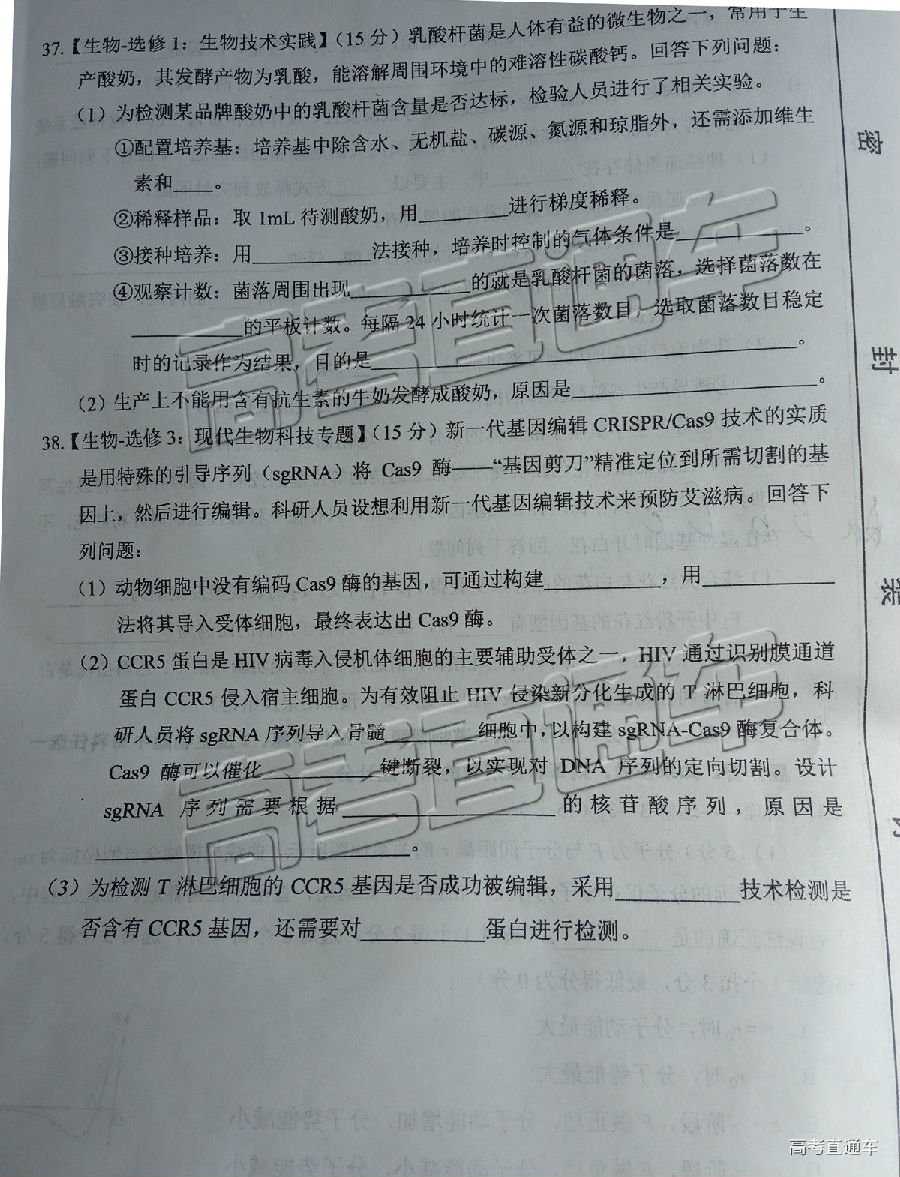 37.【生物-选修1：生物技术实践】（15分）乳酸杆菌是人体有益的微生物之一，常用于生
产酸奶，其发酵产物为乳酸，能溶解周围环境中的难溶性碳酸钙。回答下列问题：
（1）为检测某品牌酸奶中的乳酸杆菌含量是否达标，检验人员进行了相关实验。
①配置培养基：培养基中除含水、无机盐、碳源、氮源和琼脂外，还需添加维生
素和____。
②稀释样品：取1mL待测酸奶，用________进行梯度稀释。
③接种培养：用__________法接种，培养时控制的气体条件是__________。
④观察计数：菌落周围出现__________的就是乳酸杆菌的菌落，选择菌落数在
__________的平板计数。每隔24小时统计一次菌落数目，选取菌落数目稳定
时的记录作为结果，目的是____________________。
（2）生产上不能用含有抗生素的牛奶发酵成酸奶，原因是____________________。
38.【生物-选修3：现代生物科技专题】（15分）新一代基因编辑CRISPR/Cas9技术的实质
是用特殊的引导序列（sgRNA）将Cas9酶——“基因剪刀”精准定位到所需切割的基
因上，然后进行编辑。科研人员设想利用新一代基因编辑技术来预防艾滋病。回答下
列问题：
（1）动物细胞中没有编码Cas9酶的基因，可通过构建__________，用__________
法将其导入受体细胞，最终表达出Cas9酶。
（2）CCR5蛋白是HIV病毒入侵机体细胞的主要辅助受体之一，HIV通过识别膜通道
蛋白CCR5侵入宿主细胞。为有效阻止HIV侵染新分化生成的T淋巴细胞，科
研人员将sgRNA序列导入骨髓________细胞中，以构建sgRNA-Cas9酶复合体。
Cas9酶可以催化__________键断裂，以实现对DNA序列的定向切割。设计
sgRNA序列需要根据____________________的核苷酸序列，原因是
____________________。
（3）为检测T淋巴细胞的CCR5基因是否成功被编辑，采用__________技术检测是
否含有CCR5基因，还需要对__________蛋白进行检测。
密
封
装
高考直通车
高考直通车
高考直通车